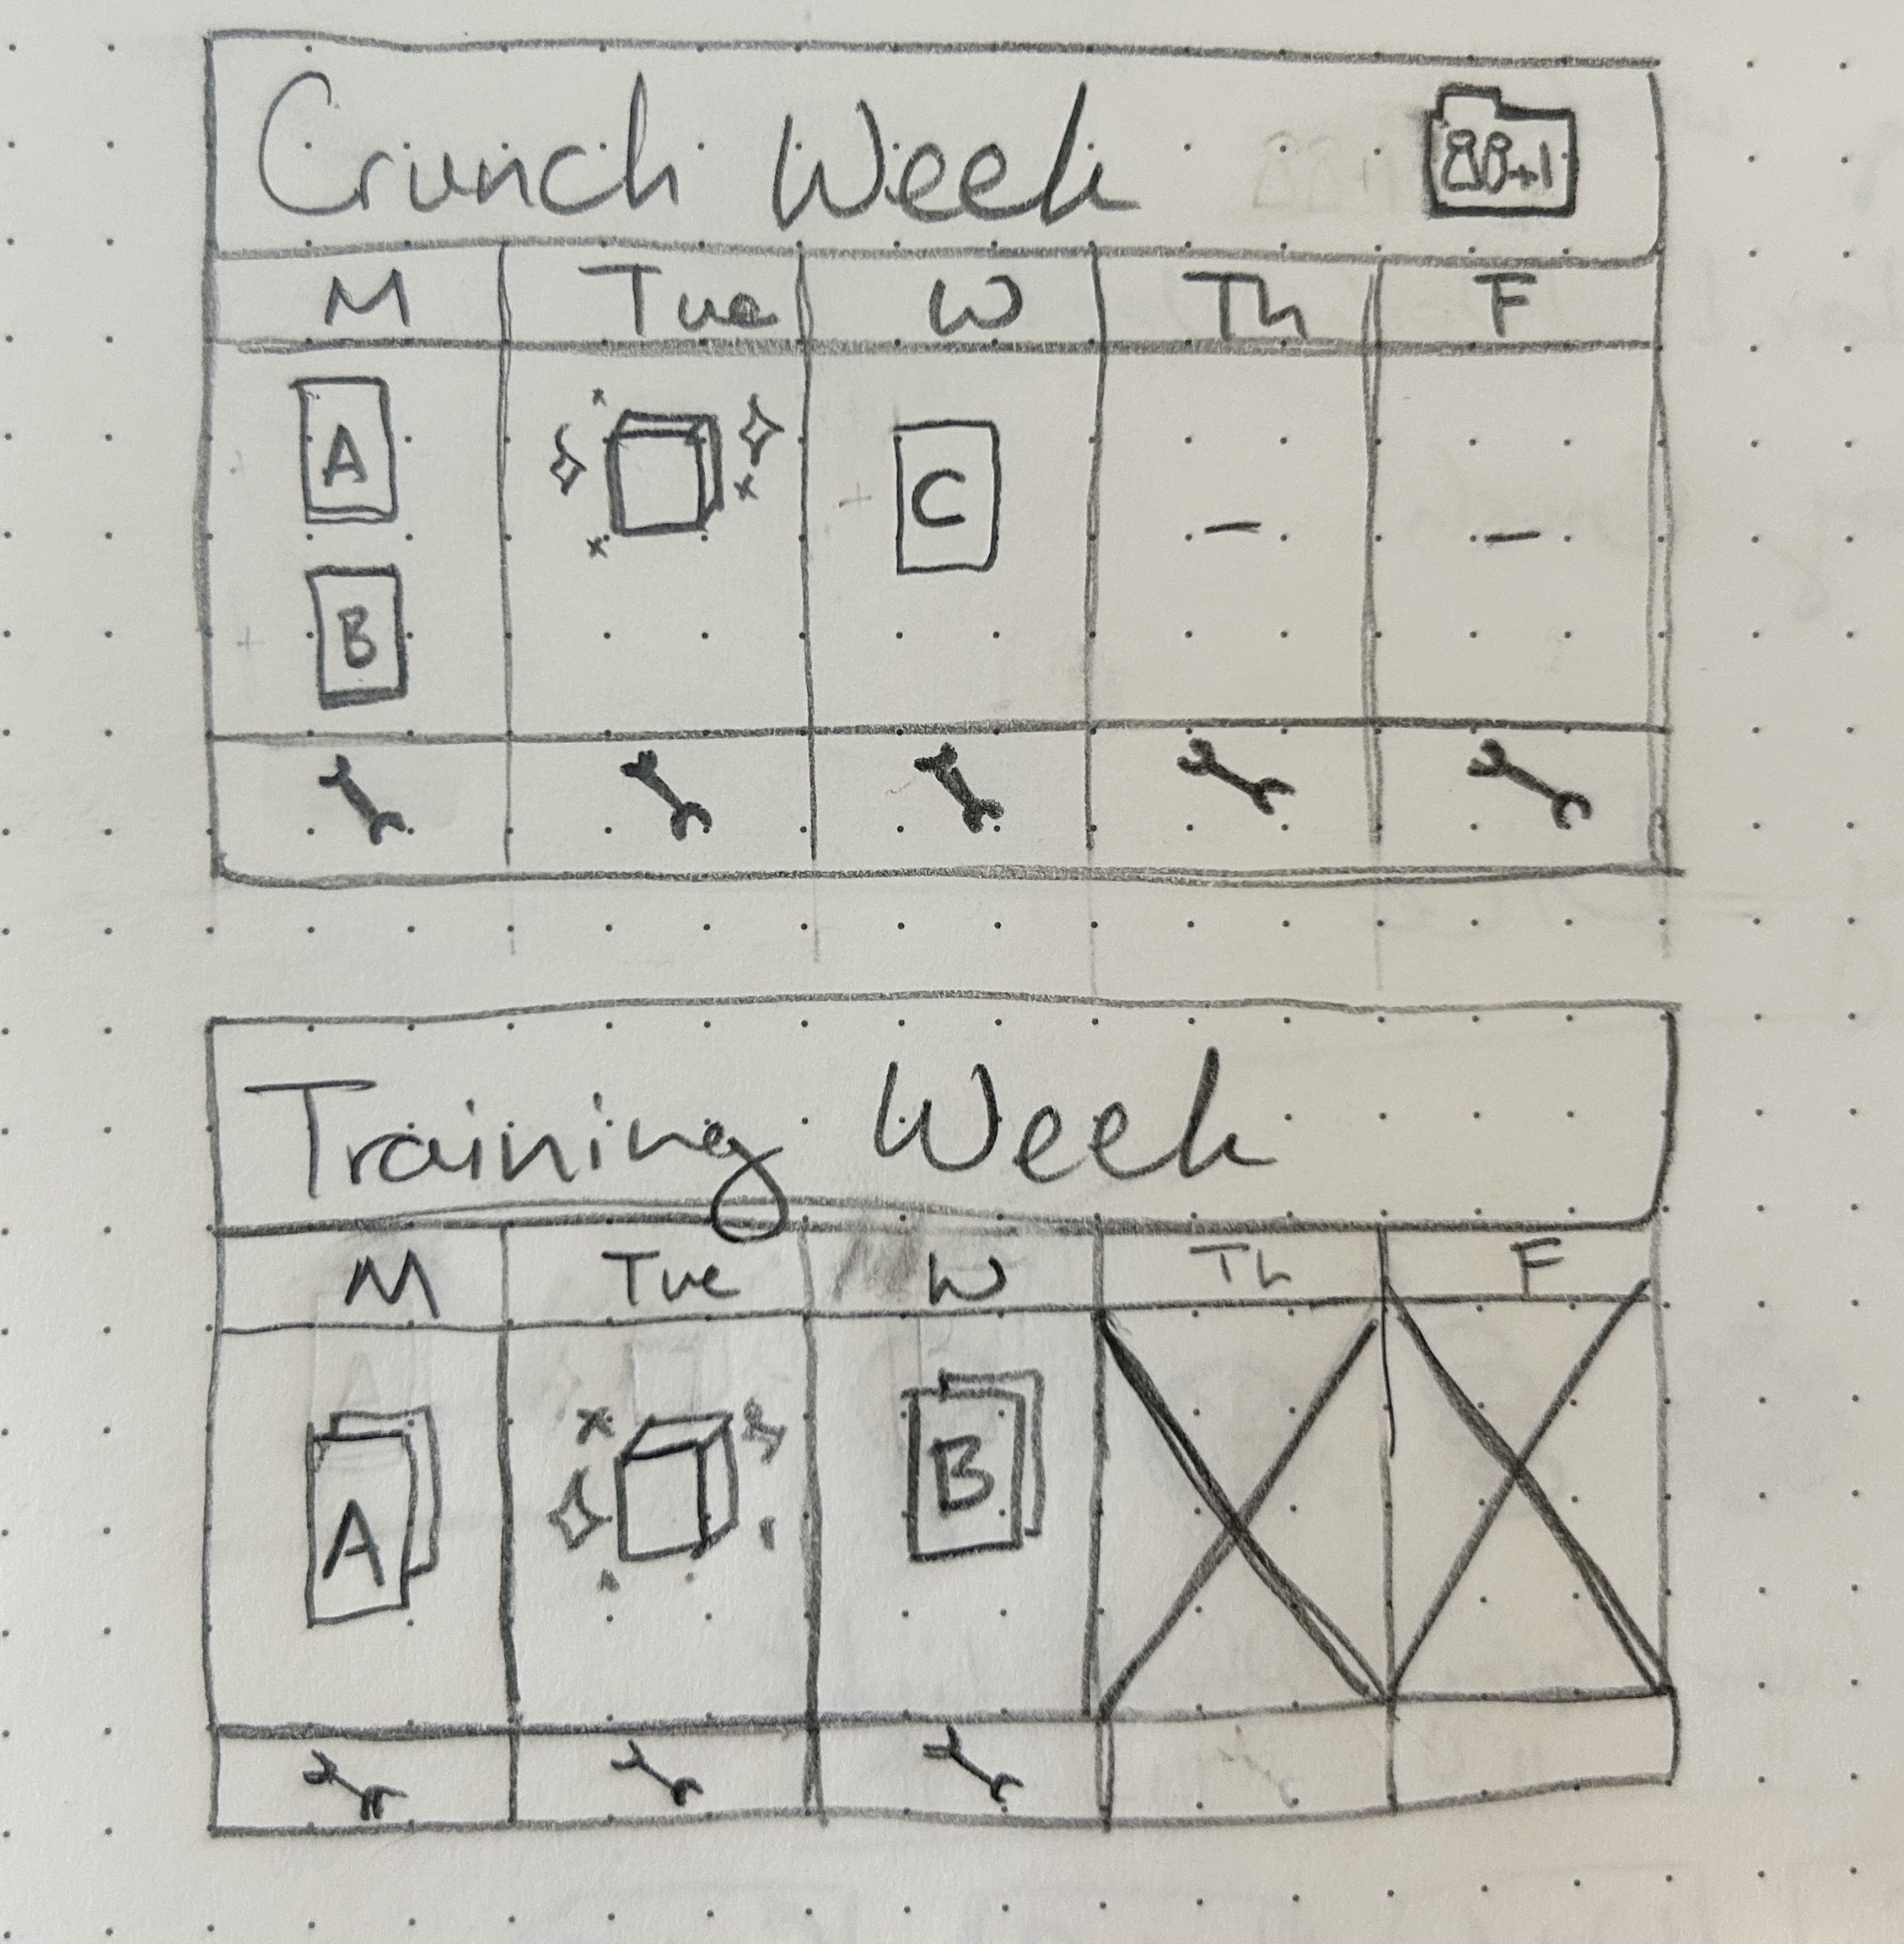 Crunch Week
+1
M Tue W Th F
A
C
B
Training Week
M Tue W Th F
A
B